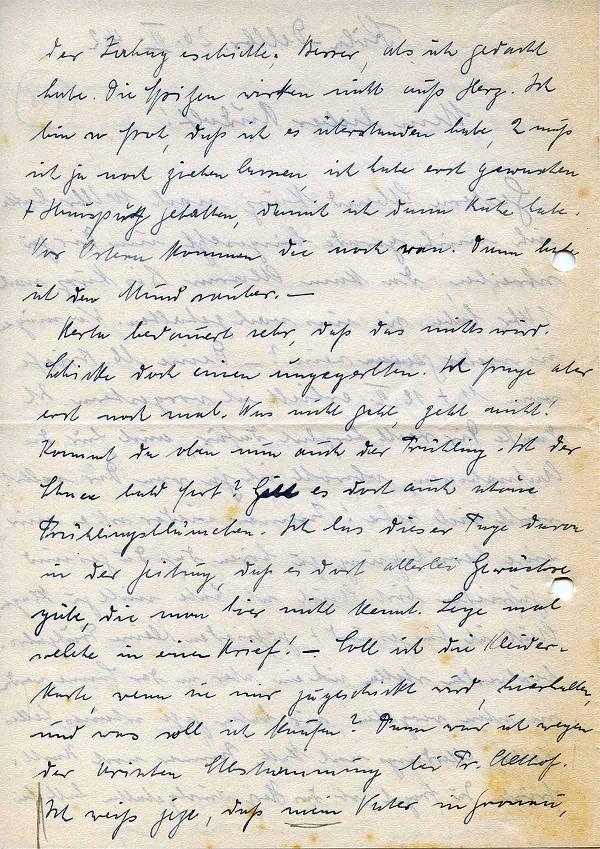 der Zahng eschichte. Besser, als ich gedacht
habe. Die Spritzen wirken nicht aufs Herz. Ich
bin so froh, daß ich es überstanden habe, 2 muß
ich ja noch ziehen lassen, ich habe erst gewaschen
+ Hausputz gehalten, damit ich dann Ruhe habe.
Vor Ostern kommen die noch dran. Dann habe
ich den Mund sauber. —
bedauert sehr, daß das nichts wird.
Schicke doch einen Ich frage aber
erst noch mal. Was nicht geht, geht nicht!
Kommt da oben nun auch der Frühling. Ist der
Schnee bald fort? Gibt es dort auch
Frühlingsblümchen. Ich las dieser Tage davon
in der Zeitung, daß es dort allerlei Gewächse
gäbe, die man hier nicht kennt. Lege mal
welche in einen Brief! — Soll ich die Kleider-
karte, wenn sie mir zugeschickt wird, hierhalten,
und was soll ich kaufen? Dann war ich wegen
der arischen Abstammung bei Fr.
Ich weiß jetzt, daß mein Vater in Gronau,